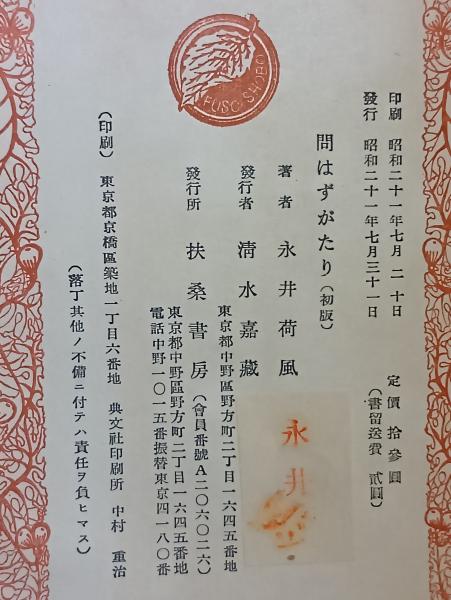 印刷 昭和二十一年七月二十日
發行 昭和二十一年七月三十一日
定價 拾參圓
(書留送費 貳圓)
問はずがたり(初版)
著者 永井荷風
發行者 淸水嘉藏
東京都中野區野方町二丁目一六四五番地
發行所 扶桑書房(會員番號A二〇六〇二六)
東京都中野區野方町二丁目一六四五番地
電話中野一〇一五番振替東京四一八〇番
(印刷) 東京都京橋區築地一丁目六番地 典文社印刷所 中村重治
(落丁其他ノ不備ニ付テハ責任ヲ負ヒマス)
FUSO SHOBO
永井